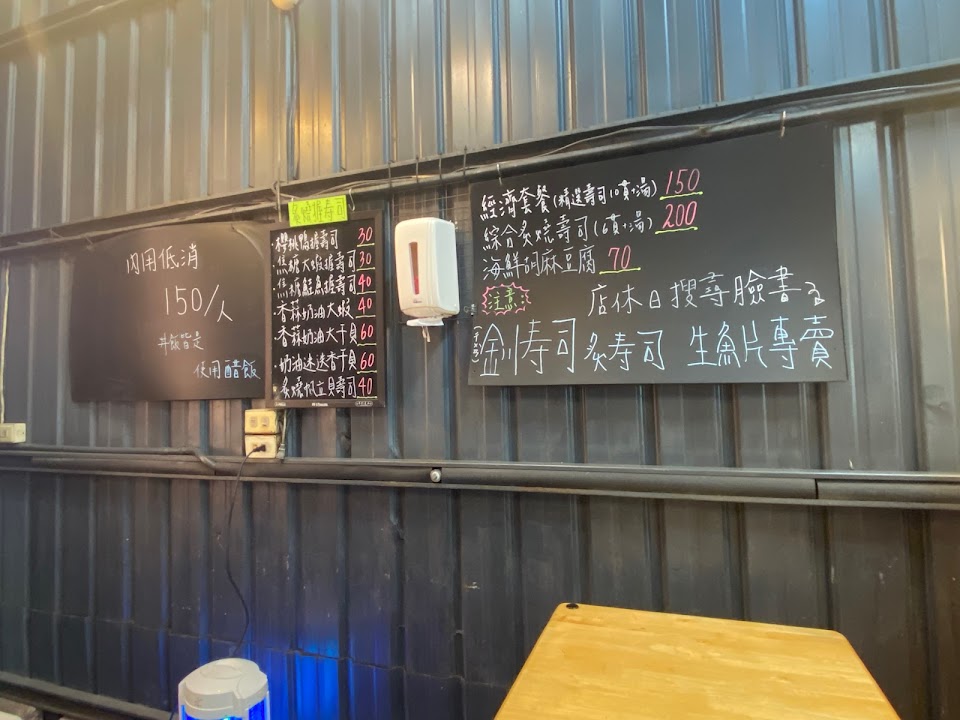 內用低消
150/人
丼飯皆是
使用醋飯
炙燒握壽司
櫻桃鴨握壽司 30
焦糖大蝦握壽司 30
焦糖鮭魚握壽司 40
·香蒜奶油大蝦 40
·香蒜奶油大干貝 60
·奶油迷迭香干貝 60
炙燒帆立貝壽司 40
經濟套餐(精選壽司10貫+湯) 150
綜合炙燒壽司(6貫+湯) 200
海鮮胡麻豆腐 70
注意: 店休日搜尋臉書
金川寿司 炙寿司 生魚片專賣